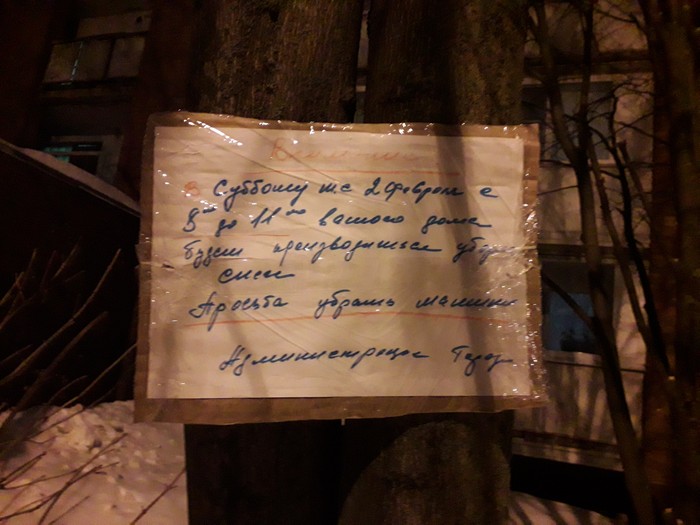 Внимание
В Субботу т.е 2 февраля с
9⁰⁰ до 11⁰⁰ вашего дома
будет производиться убор
снега
Просьба убрать машины
Администрация Город